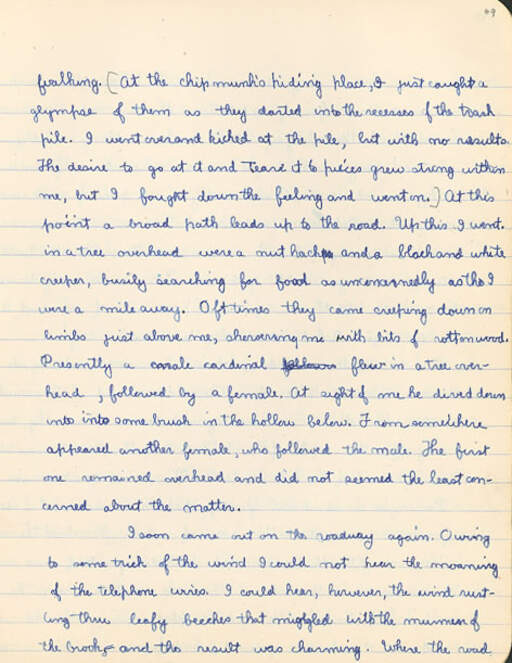 49
walking. [At the chipmunk's hiding place, I just caught a
glympse of them as they darted into the recesses of the trash
pile. I went over and kicked at the pile, but with no results.
The desire to go at it and tear it to pieces grew strong within
me, but I fought down the feeling and went on.] At this
point a broad path leads up to the road. Up this I went.
in a tree overhead were a nut hatch and a black and white
creeper, busily searching for food as unconcernedly as tho I
were a mile away. Oft times they came creeping down on
limbs just above me, showering me with bits of rotten wood.
Presently a male cardinal flew in a tree over-
head, followed by a female. At sight of me he dived down
into into some brush in the hollow below. From somewhere
appeared another female, who followed the male. The first
one remained overhead and did not seemed the least con-
cerned about the matter.
I soon came out on the roadway again. Owing
to some trick of the wind I could not hear the moaning
of the telephone wires. I could hear, however, the wind rust-
ling thru leafy beeches that miggled with the murmur of
the brook, and the result was charming. Where the road